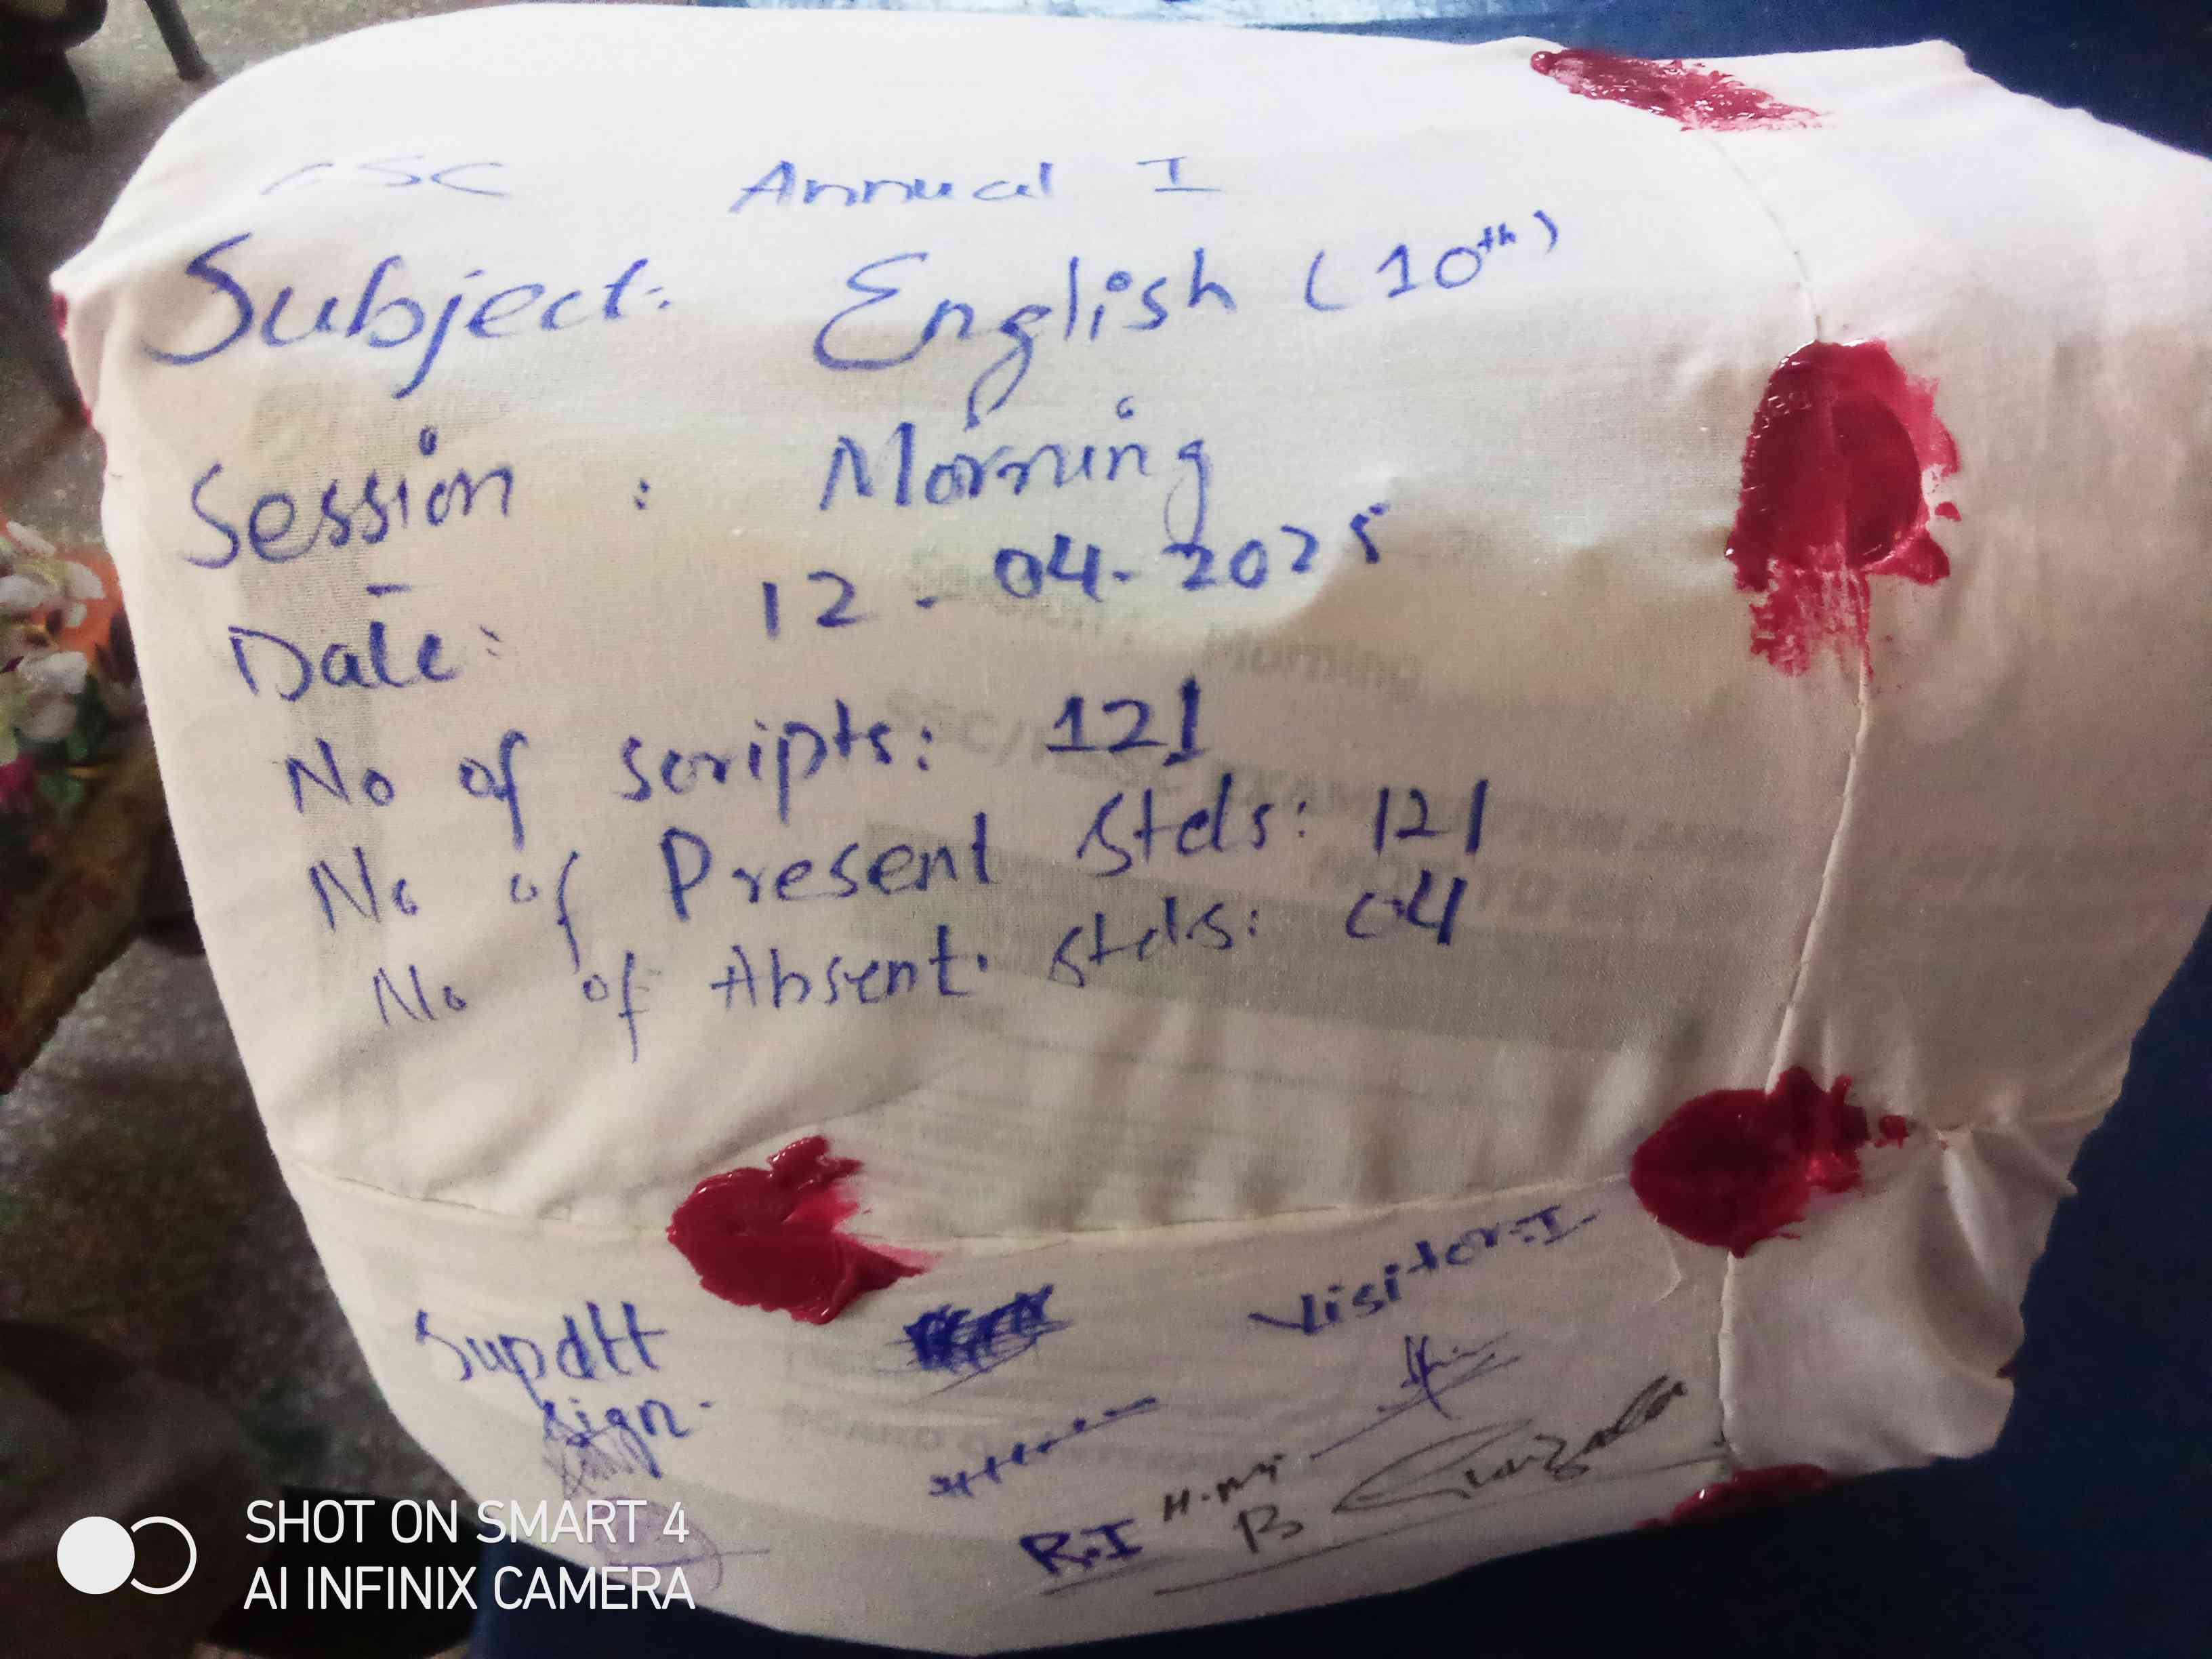 SSC Annual I
Subject: English (10th)
Session : Morning
Date: 12-04-2025
No of scripts: 121
No of Present Stds: 121
No of Absent Stds: 04
Supdtt
Sign.
Visitor:I
R.I
SHOT ON SMART 4
AI INFINIX CAMERA
Morning